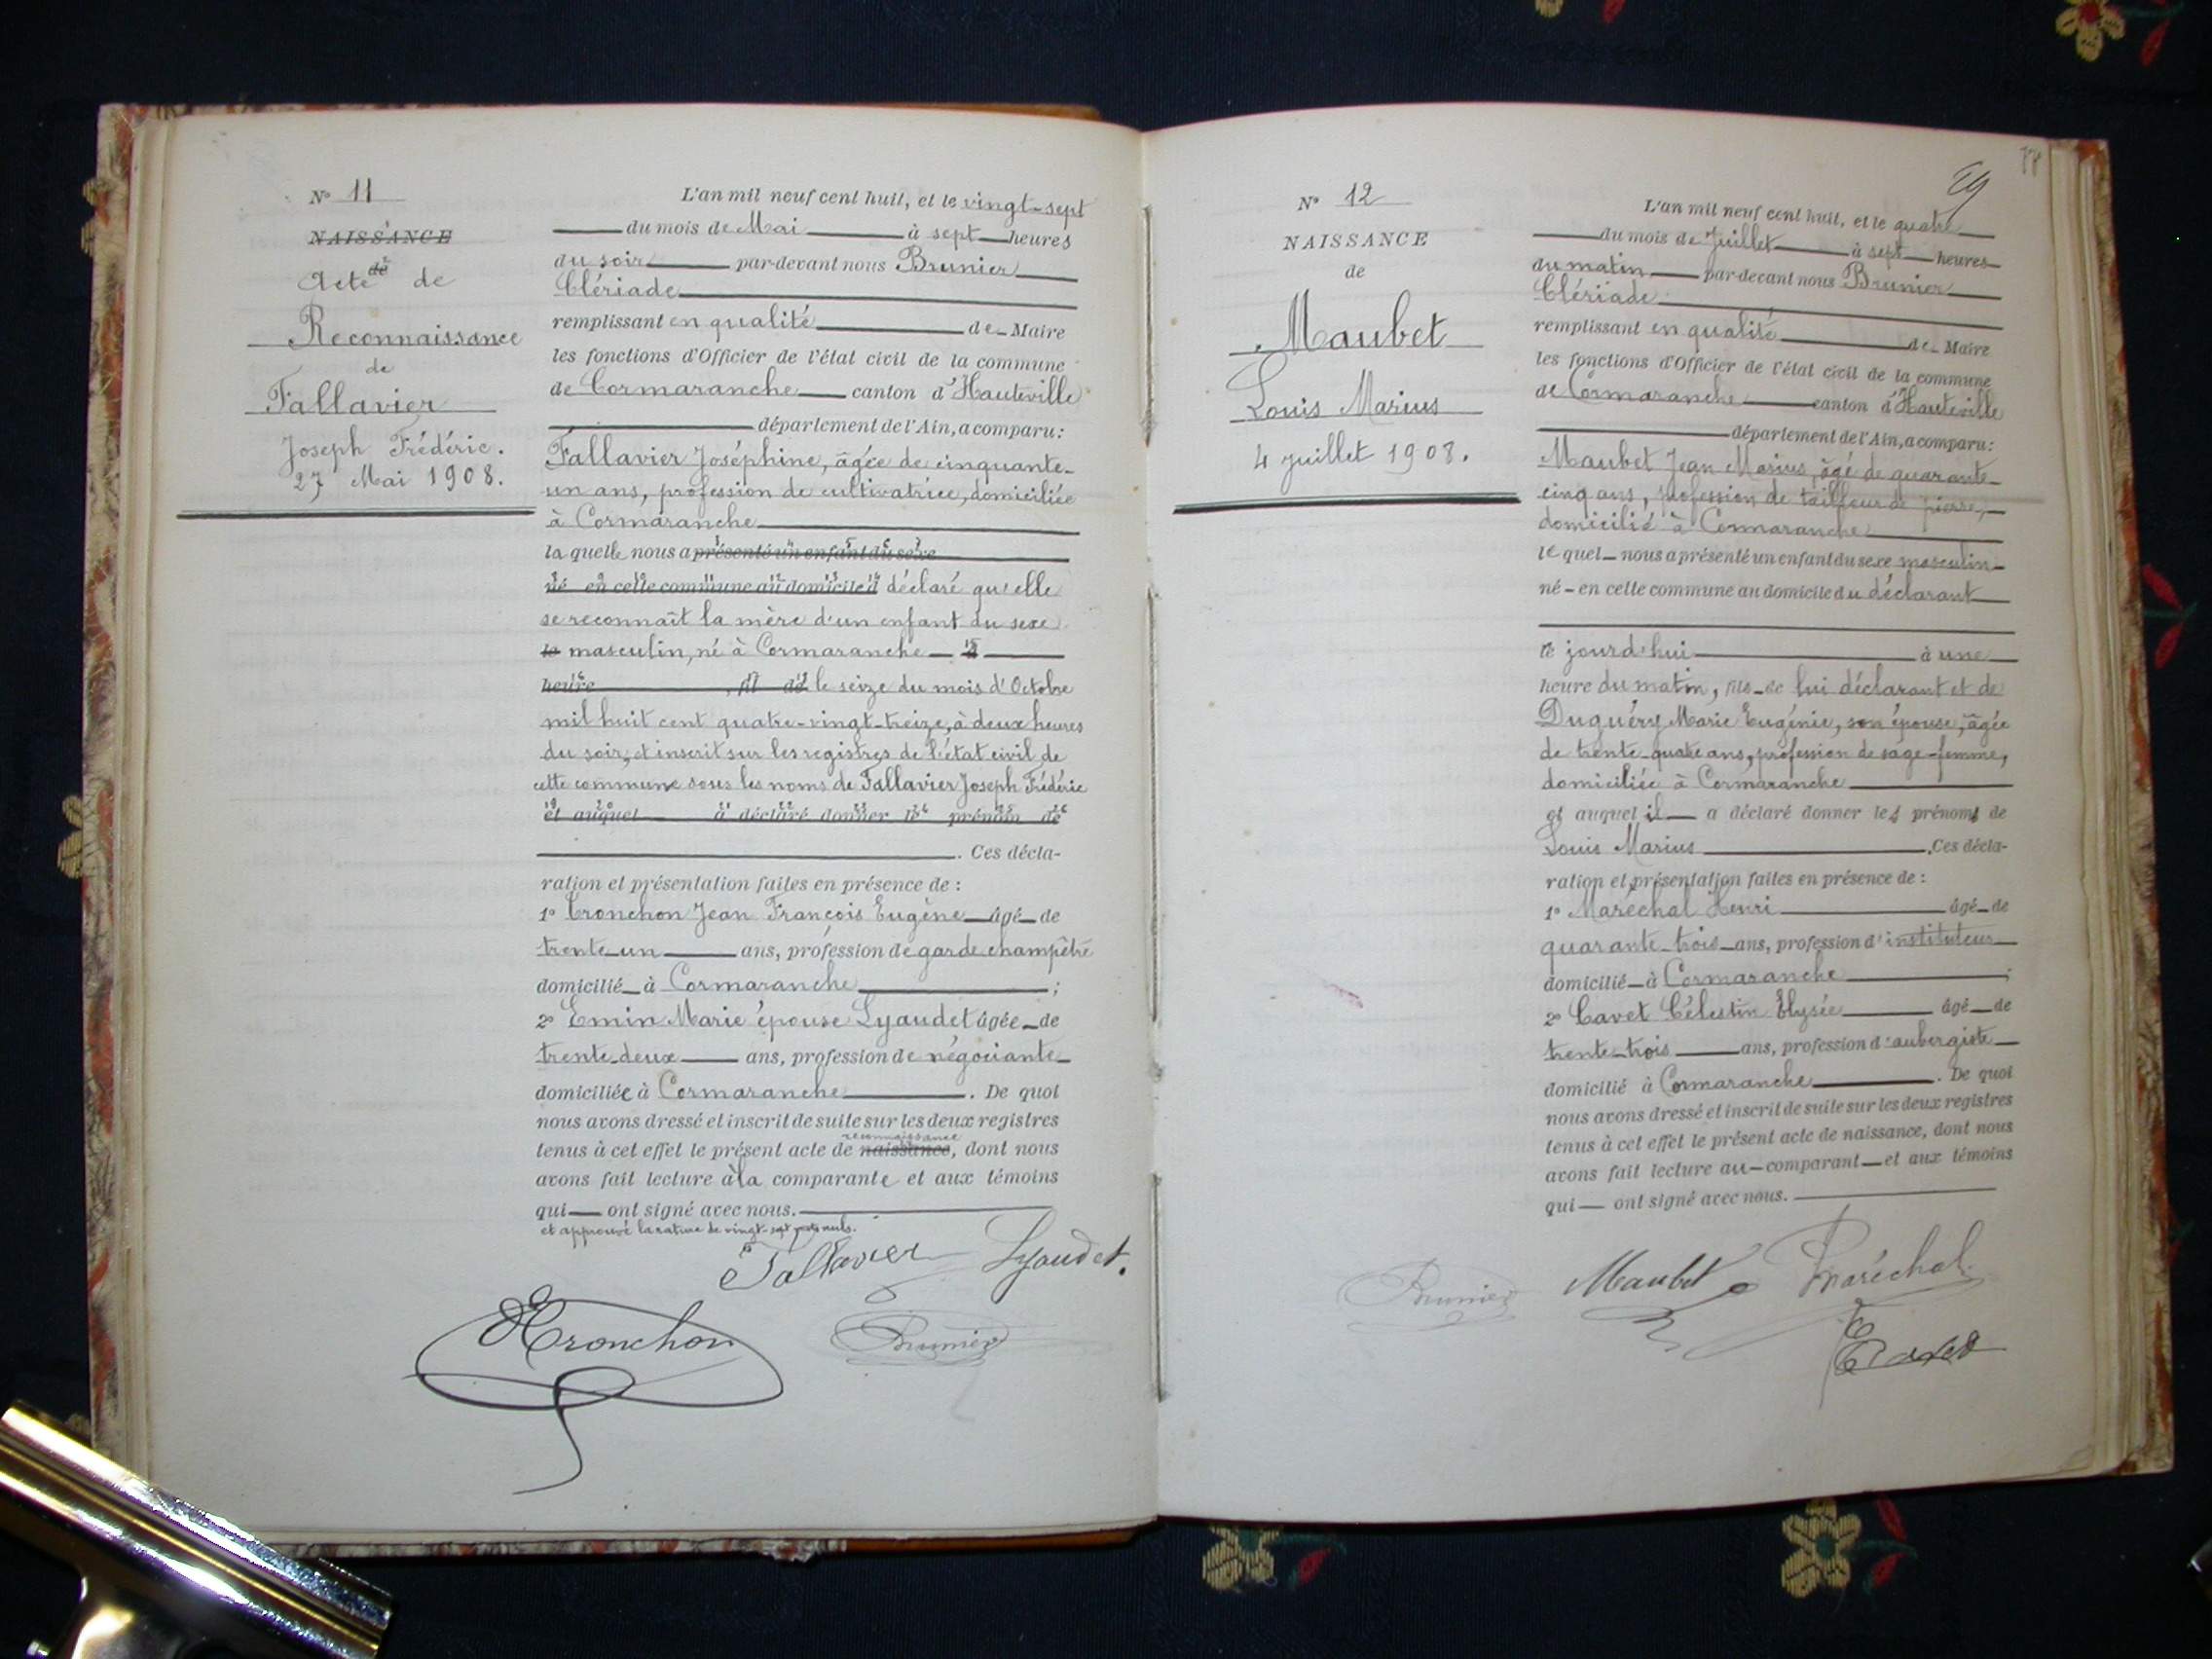 N° 11
NAISSANCE
de
Acte de
Reconnaissance
de
Fallavier
Joseph Frédéric.
27 Mai 1908.
L'an mil neuf cent huit, et le vingt-sept
du mois de Mai à sept heures
du soir par-devant nous Brunier
Clériade
remplissant en qualité de Maire
les fonctions d'Officier de l'état civil de la commune
de Cormaranche canton d'Hauteville
département de l'Ain, a comparu:
Fallavier Joséphine, âgée de cinquante-
un ans, profession de cultivatrice, domiciliée
à Cormaranche
la quelle nous a présenté un enfant du sexe
né en cette commune au domicile d déclaré qu'elle
se reconnaît la mère d'un enfant du sexe
le masculin, né à Cormaranche à
heure, fil de le seize du mois d'Octobre
mil huit cent quatre-vingt-treize, à deux heures
du soir, et inscrit sur les registres de l'état civil de
cette commune sous les noms de Fallavier Joseph Frédéric
et auquel a déclaré donner le prénom de
. Ces décla-
ration et présentation faites en présence de :
1° Cronchon Jean François Eugène âgé de
trente-un ans, profession de garde champêtre
domicilié à Cormaranche ;
2° Emin Marie épouse Lyaudet âgée de
trente-deux ans, profession de négociante
domiciliée à Cormaranche. De quoi
nous avons dressé et inscrit de suite sur les deux registres
reconnaissance
tenus à cet effet le présent acte de naissance, dont nous
avons fait lecture à la comparante et aux témoins
qui ont signé avec nous.
et approuvé la rature de vingt-sept mots nuls.
Fallavier Lyaudet.
Cronchon Brunier
29
N° 12
NAISSANCE
de
Maubet
Louis Marius
4 juillet 1908.
L'an mil neuf cent huit, et le quatre
du mois de Juillet à sept heures
du matin par-devant nous Brunier
Clériade
remplissant en qualité de Maire
les fonctions d'Officier de l'état civil de la commune
de Cormaranche canton d'Hauteville
département de l'Ain, a comparu:
Maubet Jean Marius, âgé de quarante-
cinq ans, profession de tailleur de pierre,
domicilié à Cormaranche
le quel nous a présenté un enfant du sexe masculin
né en cette commune au domicile du déclarant
ce jourd'hui à une
heure du matin, fils de lui déclarant et de
Duguéry Marie Eugénie, son épouse, âgée
de trente-quatre ans, profession de sage-femme,
domiciliée à Cormaranche
et auquel il a déclaré donner les prénoms de
Louis Marius. Ces décla-
ration et présentation faites en présence de :
1° Maréchal Henri âgé de
quarante-trois ans, profession d'instituteur
domicilié à Cormaranche ;
2° Cavet Célestin Elysée âgé de
trente-trois ans, profession d'aubergiste
domicilié à Cormaranche. De quoi
nous avons dressé et inscrit de suite sur les deux registres
tenus à cet effet le présent acte de naissance, dont nous
avons fait lecture au comparant et aux témoins
qui ont signé avec nous.
Brunier Maubet Maréchal
Cavet